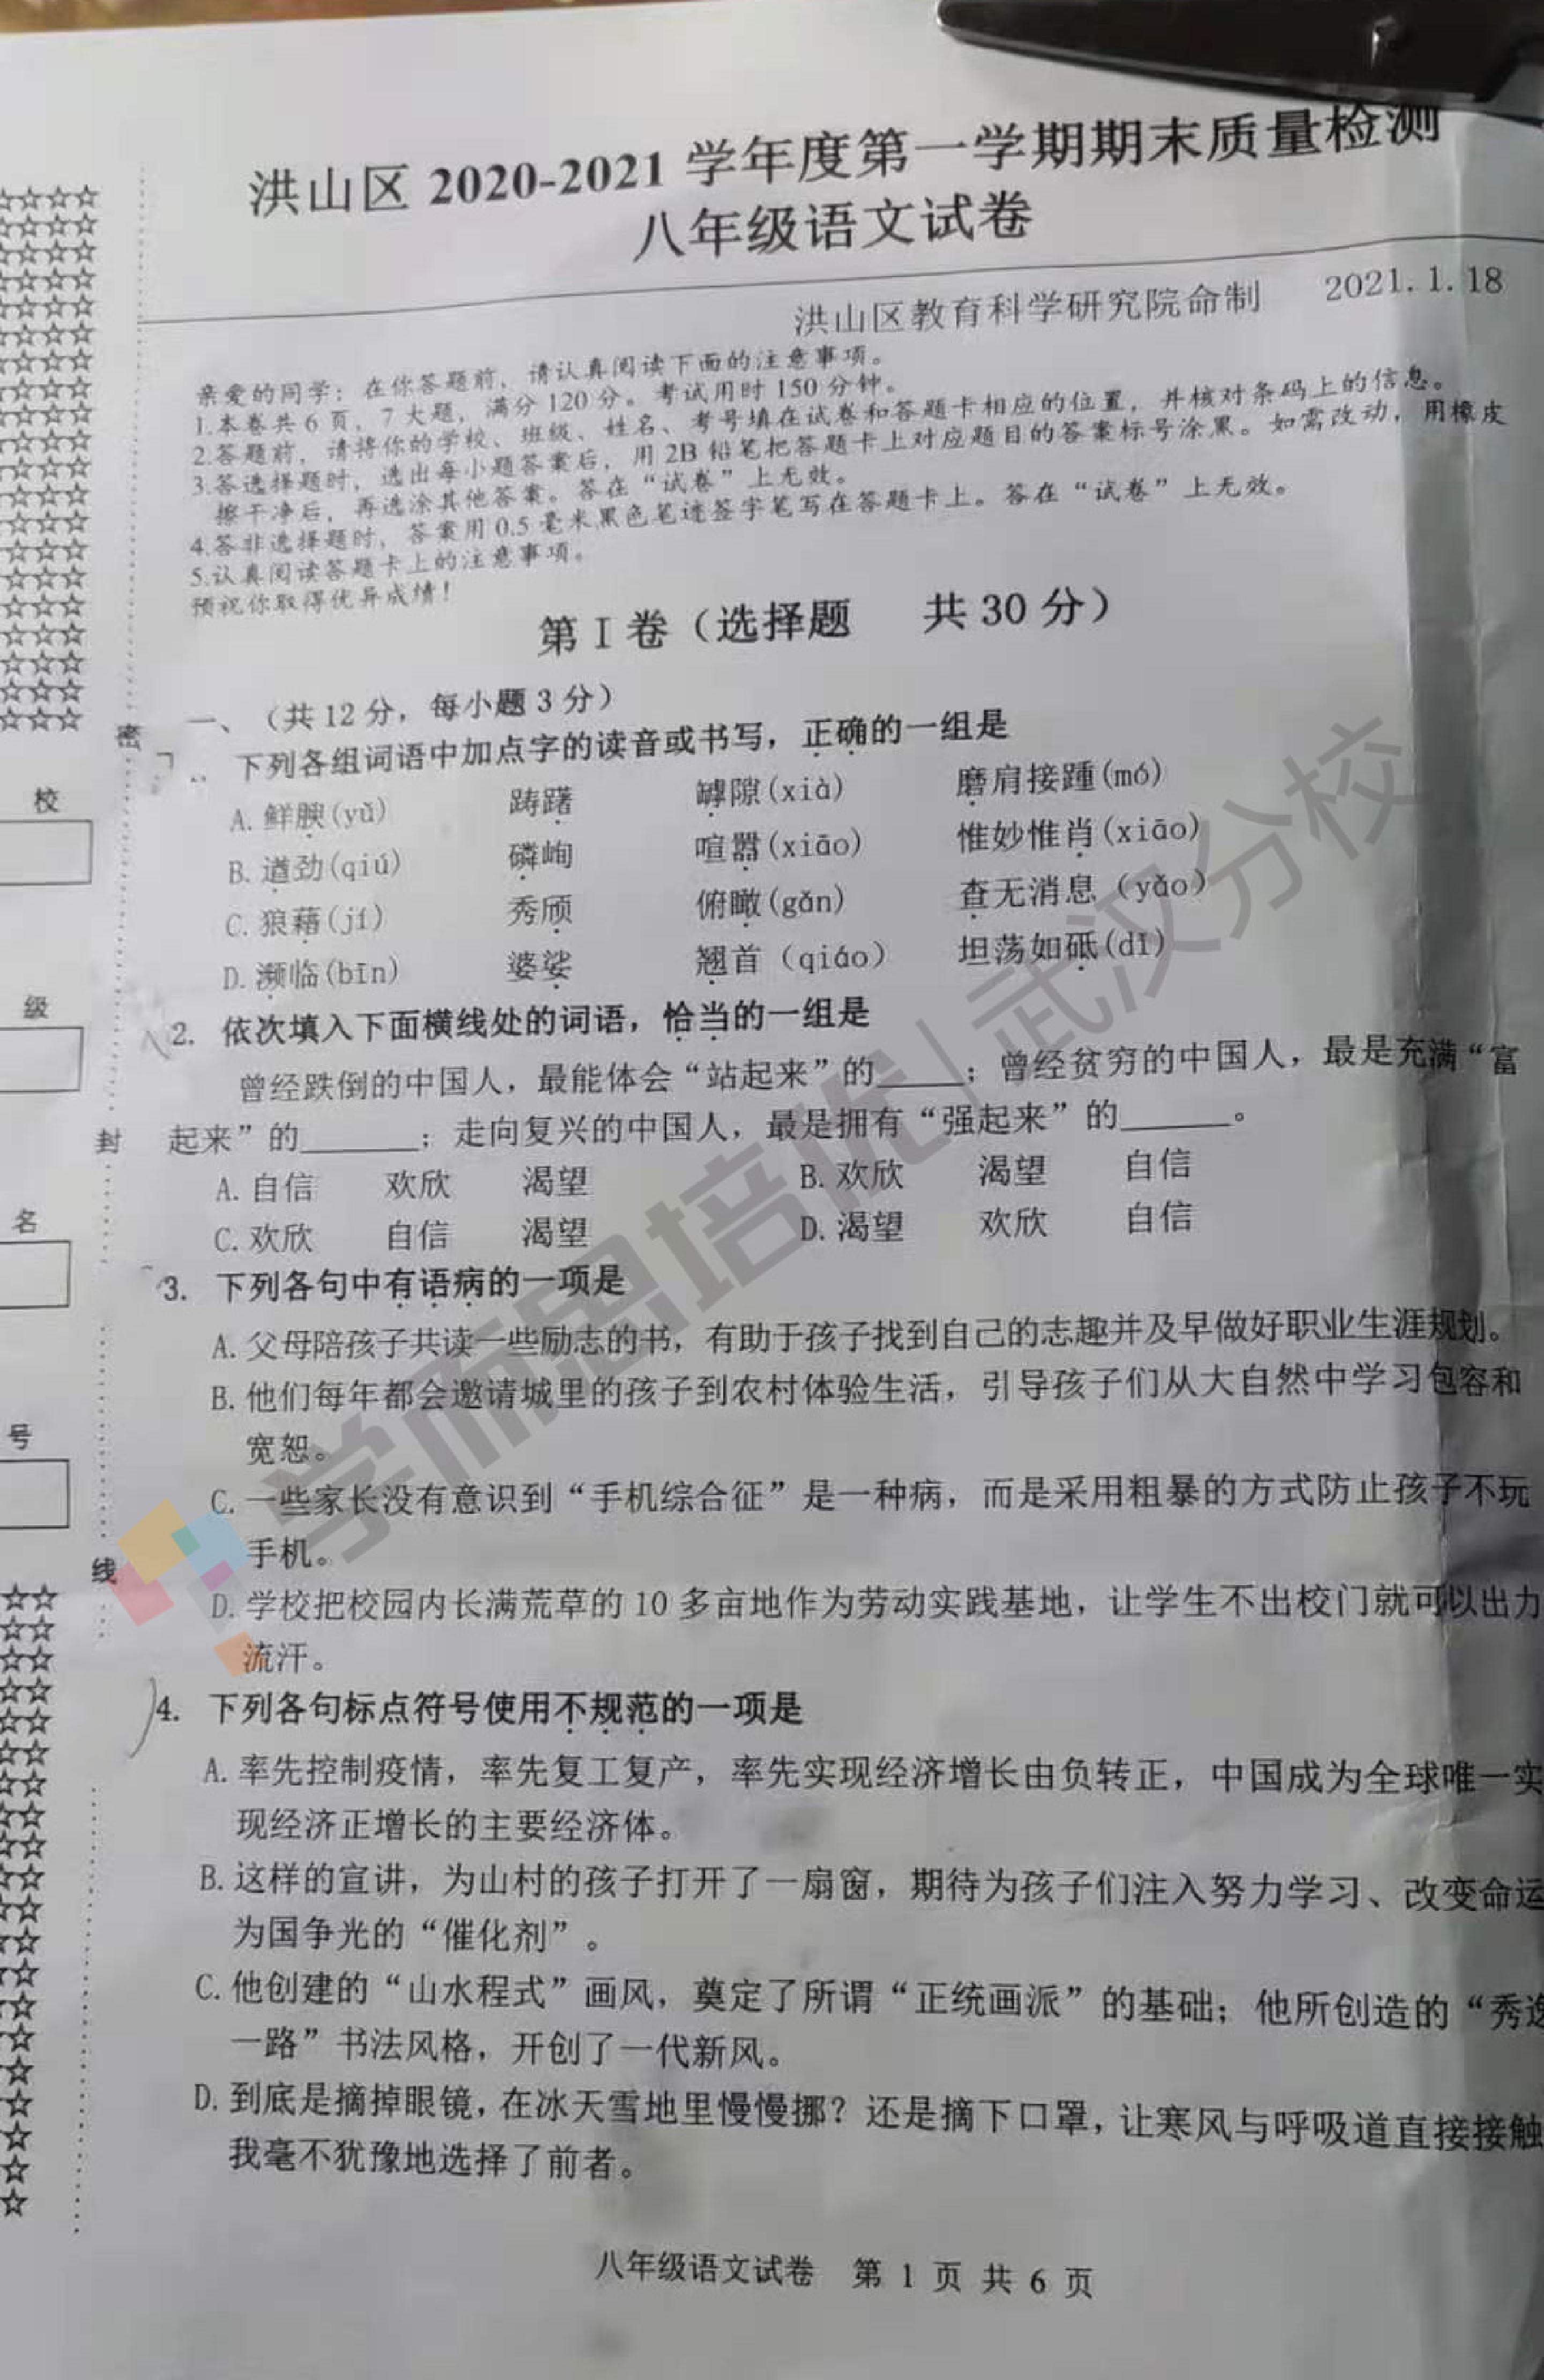 洪山区 2020-2021 学年度第一学期期末质量检测
八年级语文试卷
洪山区教育科学研究院命制 2021.1.18
亲爱的同学：在你答题前，请认真阅读下面的注意事项。
1.本卷共 6 页，7 大题，满分 120 分。考试用时 150 分钟。
2.答题前，请将你的学校、班级、姓名、考号填在试卷和答题卡相应的位置，并核对条码上的信息。
3.答选择题时，选出每小题答案后，用 2B 铅笔把答题卡上对应题目的答案标号涂黑。如需改动，用橡皮
擦干净后，再选涂其他答案。答在“试卷”上无效。
4.答非选择题时，答案用 0.5 毫米黑色笔迹签字笔写在答题卡上。答在“试卷”上无效。
5.认真阅读答题卡上的注意事项。
预祝你取得优异成绩！
第 I 卷（选择题 共 30 分）
一、（共 12 分，每小题 3 分）
下列各组词语中加点字的读音或书写，正确的一组是
A. 鲜腴(yǔ) 踌躇 罅隙(xià) 磨肩接踵(mó)
B. 遒劲(qiú) 磷峋 喧嚣(xiāo) 惟妙惟肖(xiāo)
C. 狼藉(jí) 秀颀 俯瞰(gǎn) 查无消息（yǎo）
D. 濒临(bīn) 婆娑 翘首（qiáo） 坦荡如砥(dǐ)
2. 依次填入下面横线处的词语，恰当的一组是
曾经跌倒的中国人，最能体会“站起来”的_____；曾经贫穷的中国人，最是充满“富
起来”的______；走向复兴的中国人，最是拥有“强起来”的______。
A. 自信 欢欣 渴望 B. 欢欣 渴望 自信
C. 欢欣 自信 渴望 D. 渴望 欢欣 自信
3. 下列各句中有语病的一项是
A. 父母陪孩子共读一些励志的书，有助于孩子找到自己的志趣并及早做好职业生涯规划。
B. 他们每年都会邀请城里的孩子到农村体验生活，引导孩子们从大自然中学习包容和
宽恕。
C. 一些家长没有意识到“手机综合征”是一种病，而是采用粗暴的方式防止孩子不玩
手机。
D. 学校把校园内长满荒草的 10 多亩地作为劳动实践基地，让学生不出校门就可以出力
流汗。
4. 下列各句标点符号使用不规范的一项是
A. 率先控制疫情，率先复工复产，率先实现经济增长由负转正，中国成为全球唯一实
现经济正增长的主要经济体。
B. 这样的宣讲，为山村的孩子打开了一扇窗，期待为孩子们注入努力学习、改变命运
为国争光的“催化剂”。
C. 他创建的“山水程式”画风，奠定了所谓“正统画派”的基础；他所创造的“秀逸
一路”书法风格，开创了一代新风。
D. 到底是摘掉眼镜，在冰天雪地里慢慢挪？还是摘下口罩，让寒风与呼吸道直接接触
我毫不犹豫地选择了前者。
八年级语文试卷 第 1 页 共 6 页
校
级
名
号
密
封
线
学而思培优 | 武汉分校